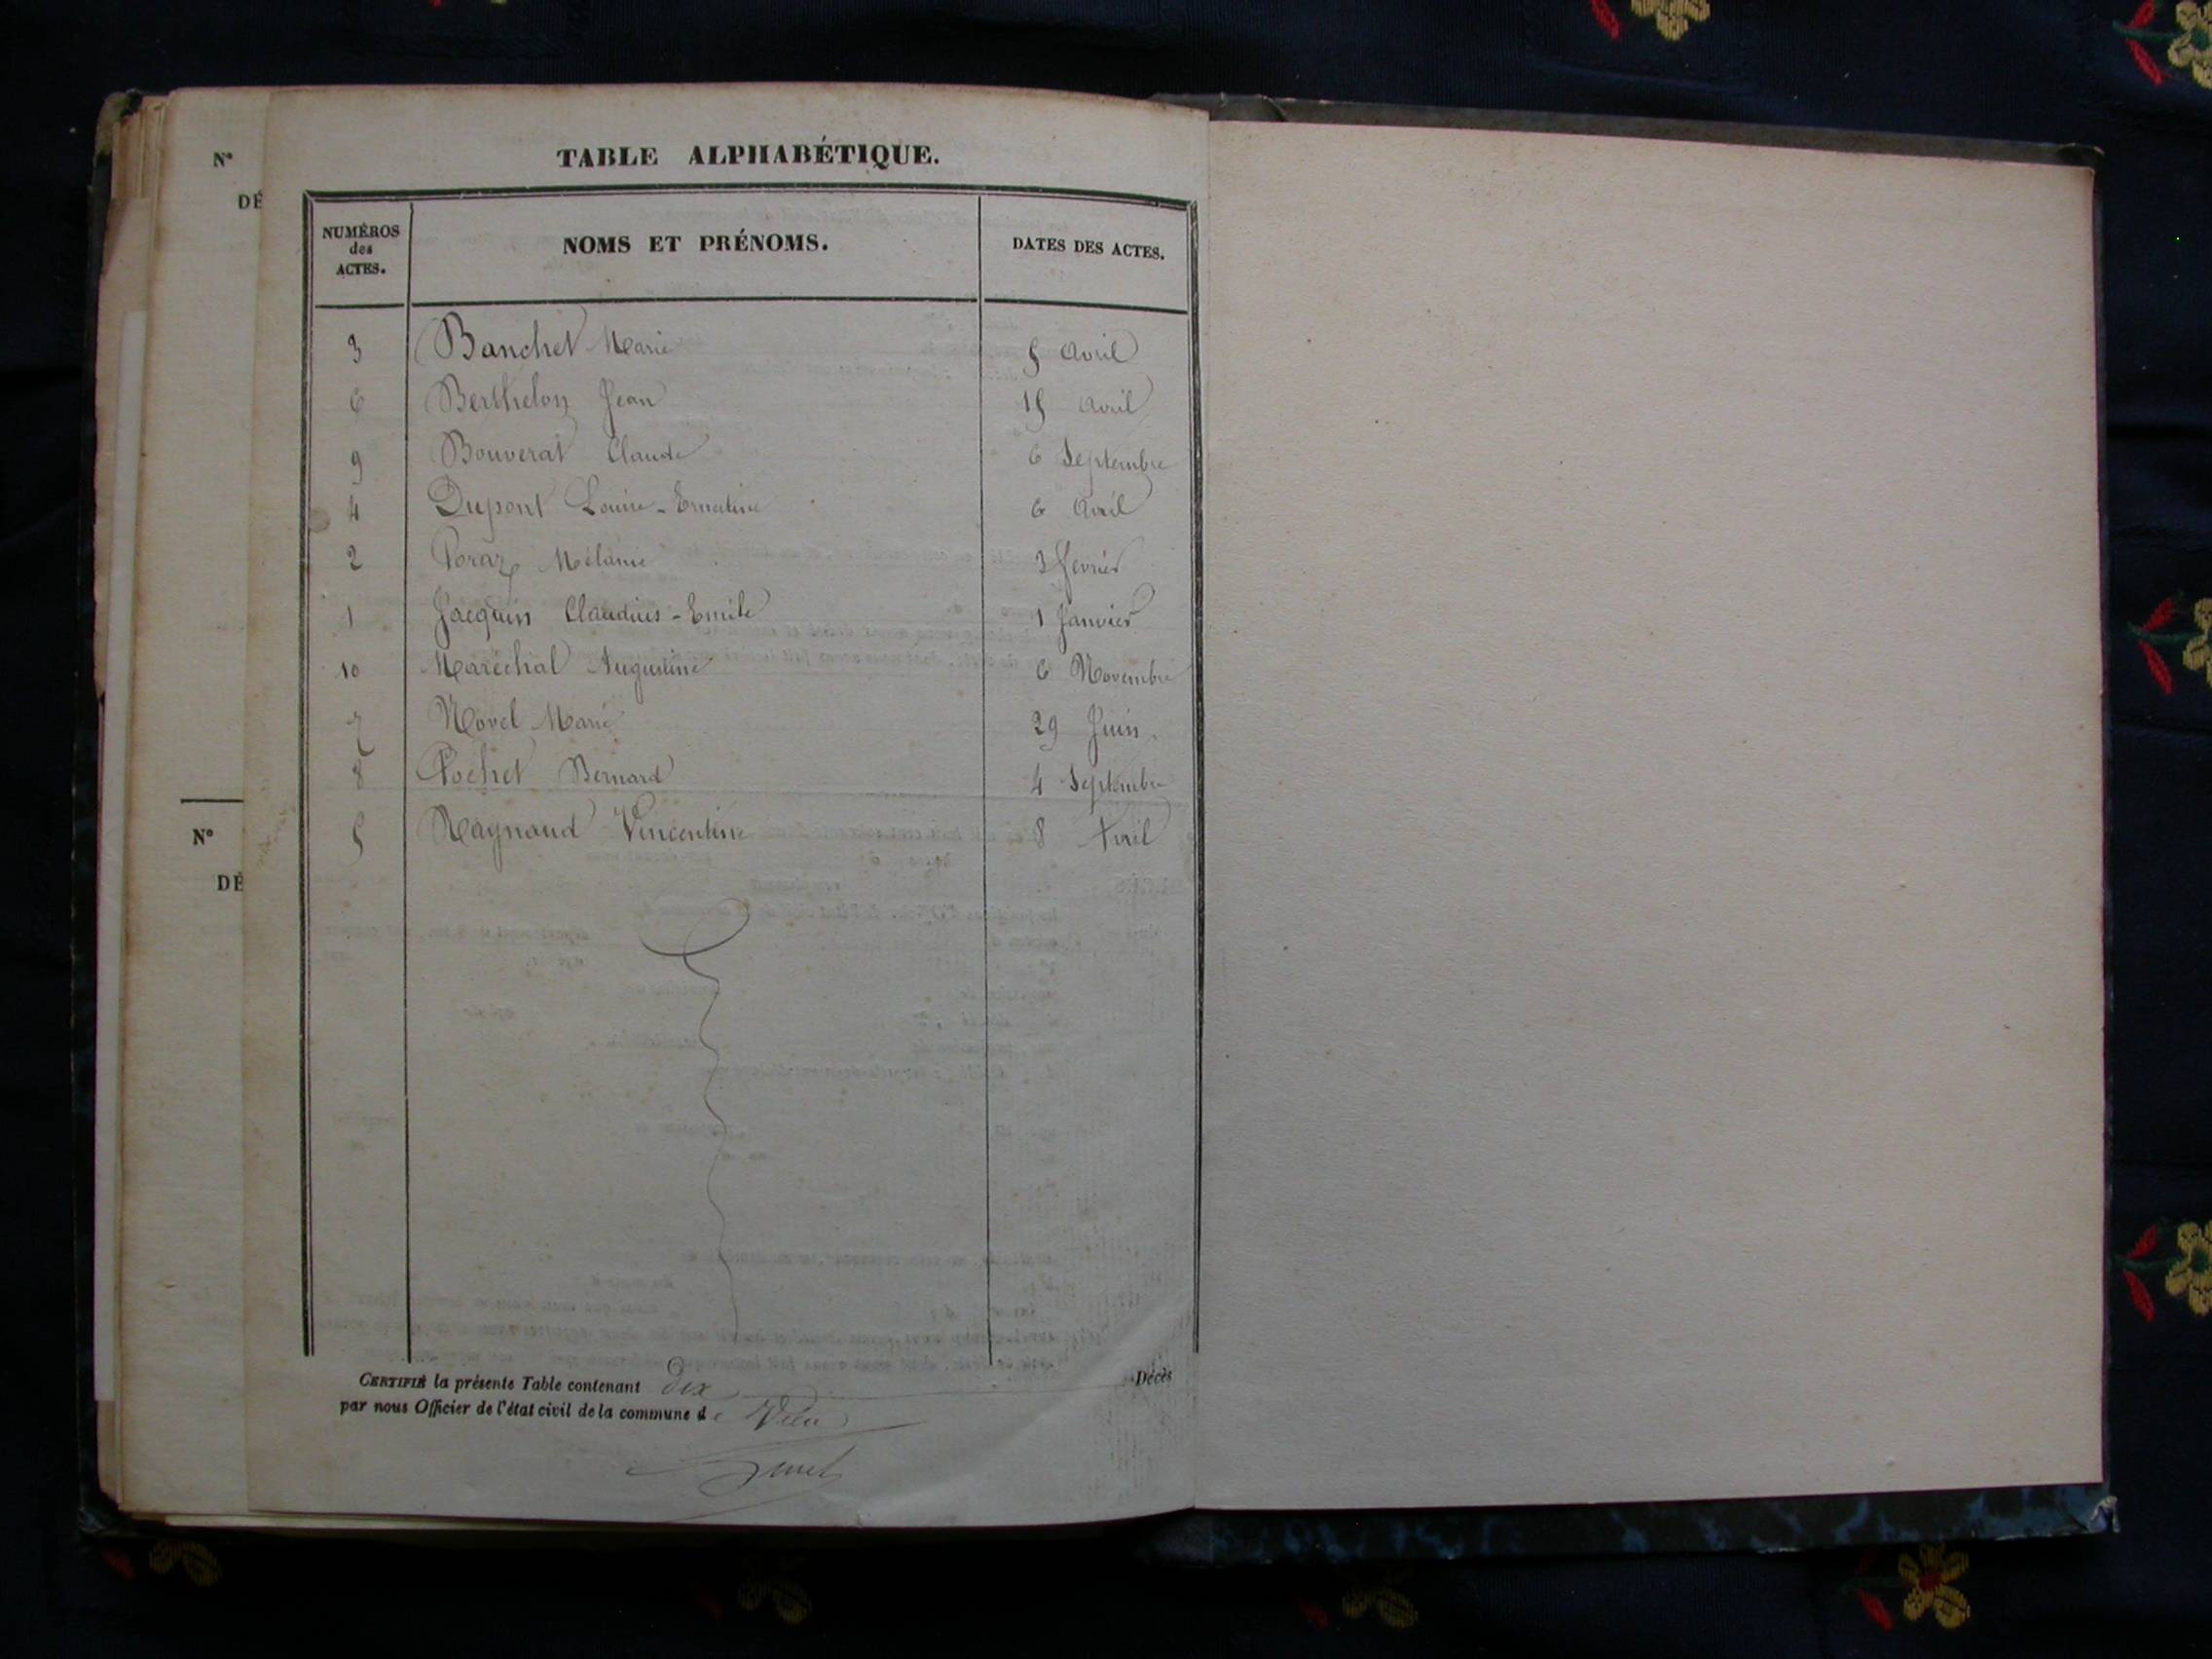 N°
DÉ
N°
DÉ
TABLE ALPHABÉTIQUE.
NUMÉROS
des
ACTES.
NOMS ET PRÉNOMS.
DATES DES ACTES.
3 Banchet Marie 5 Avril
6 Berthelon Jean 15 Avril
9 Bouverat Claude 6 Septembre
4 Dupont Louise-Ernestine 6 Avril
2 Mélanie 3 février
1 Jacquin Claudius-Emile 1 Janvier
10 Maréchal Augustine 6 Novembre
7 Novel Marie 29 Juin.
8 Pochet Bernard 4 Septembre
5 Raynaud Vincentine 8 Avril
CERTIFIÉ la présente Table contenant dix Décès
par nous Officier de l'état civil de la commune de Vieu